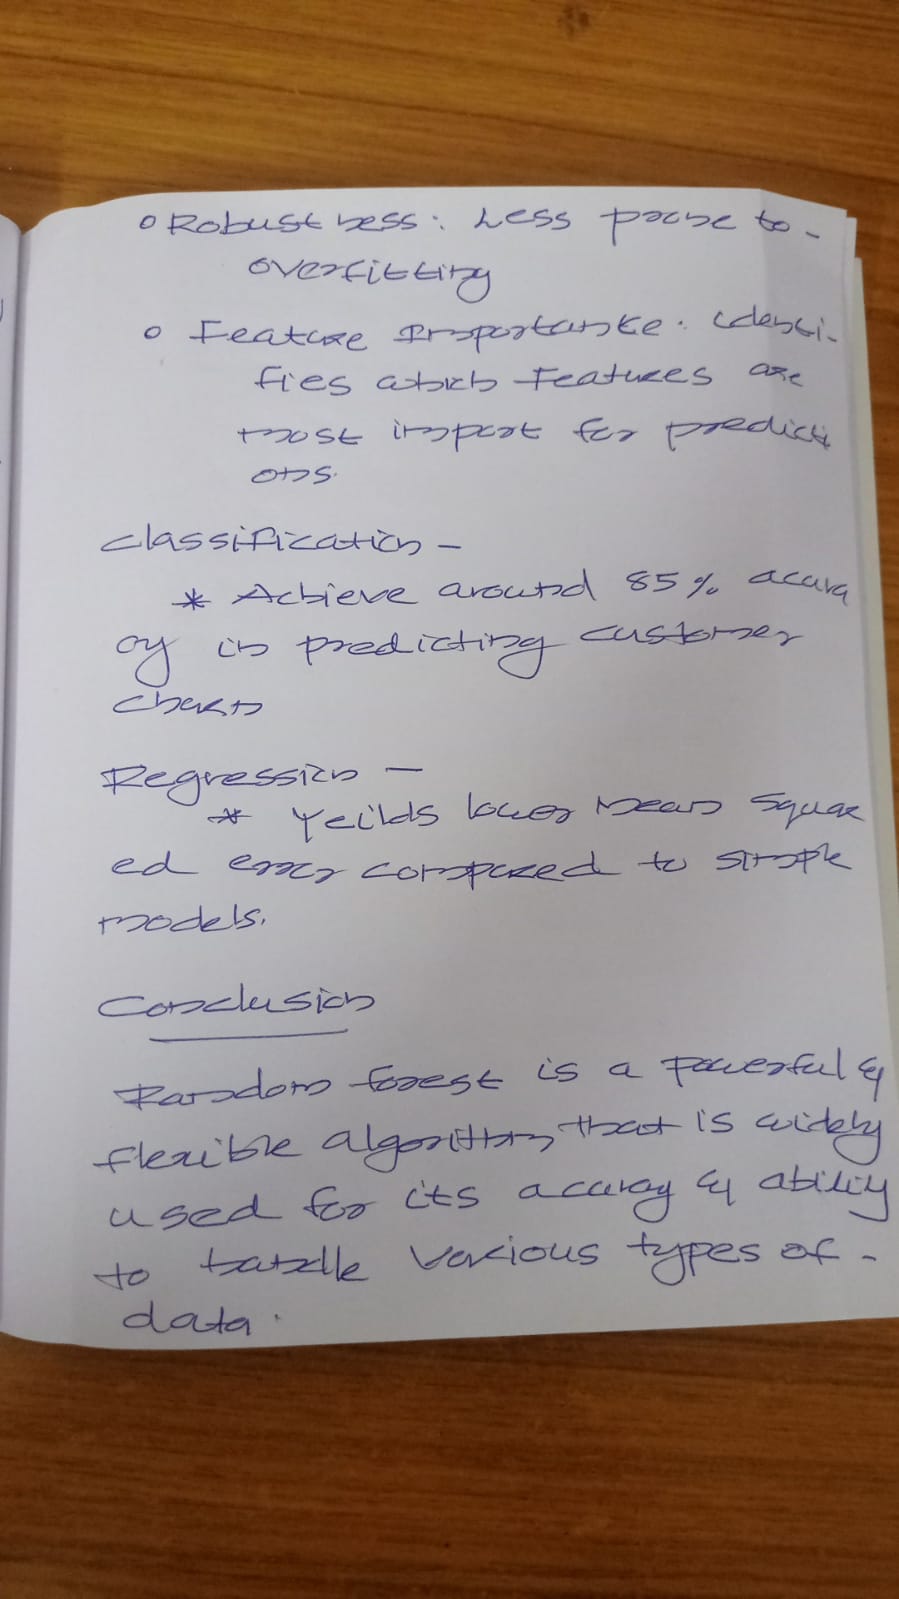 o Robustness: Less prone to -
overfitting
o Feature Importanke. identi-
fies which Features are
most import for predicti
ons.
classification -
* Achieve around 85% acura
cy in predicting customer
churn
Regression -
* Yeilds lower Mean Squar
ed error compared to simple
models.
Conclusion
Random forest is a powerful &
flexible algorithm, that is widely
used for its accuray & ability
to handle various types of -
data.